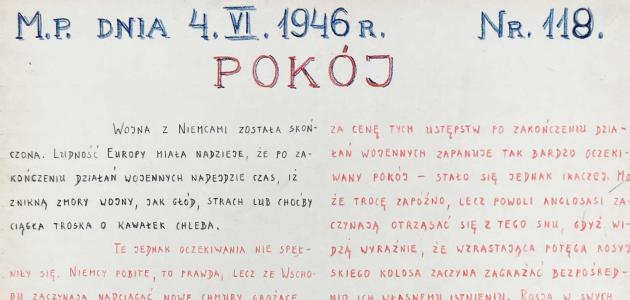 M.P. DNIA 4.VI.1946 R. NR. 118.
POKÓJ
WOJNA Z NIEMCAMI ZOSTAŁA SKOŃ-
CZONA. LUDNOŚĆ EUROPY MIAŁA NADZIEJĘ, ŻE PO ZA-
KOŃCZENIU DZIAŁAŃ WOJENNYCH NADEJDZIE CZAS, IŻ
ZNIKNĄ ZMORY WOJNY, JAK GŁÓD, STRACH LUB CHOĆBY
CIĄGŁA TROSKA O KAWAŁEK CHLEBA.
TE JEDNAK OCZEKIWANIA NIE SPEŁ-
NIŁY SIĘ. NIEMCY POBITE, TO PRAWDA, LECZ ZE WSCHO-
DU ZACZYNAJĄ NADCIĄGAĆ NOWE CHMURY GROŻĄCE
ZA CENĘ TYCH USTĘPSTW PO ZAKOŃCZENIU DZIA-
ŁAŃ WOJENNYCH ZAPANUJE TAK BARDZO OCZEKI-
WANY POKÓJ – STAŁO SIĘ JEDNAK INACZEJ. MO
ŻE TROCĘ ZAPÓŹNO, LECZ POWOLI ANGLOSASI ZA-
CZYNAJĄ OTRZĄSAĆ SIĘ Z TEGO SNU, GDYŻ WI-
DZĄ WYRAŹNIE, ŻE WZRASTAJĄCA POTĘGA ROSYJ
SKIEGO KOLOSA ZACZYNA ZAGRAŻAĆ BEZPOŚRED-
NIO ICH WŁASNEMU ISTNIENIU. ROSJA W SWYCH